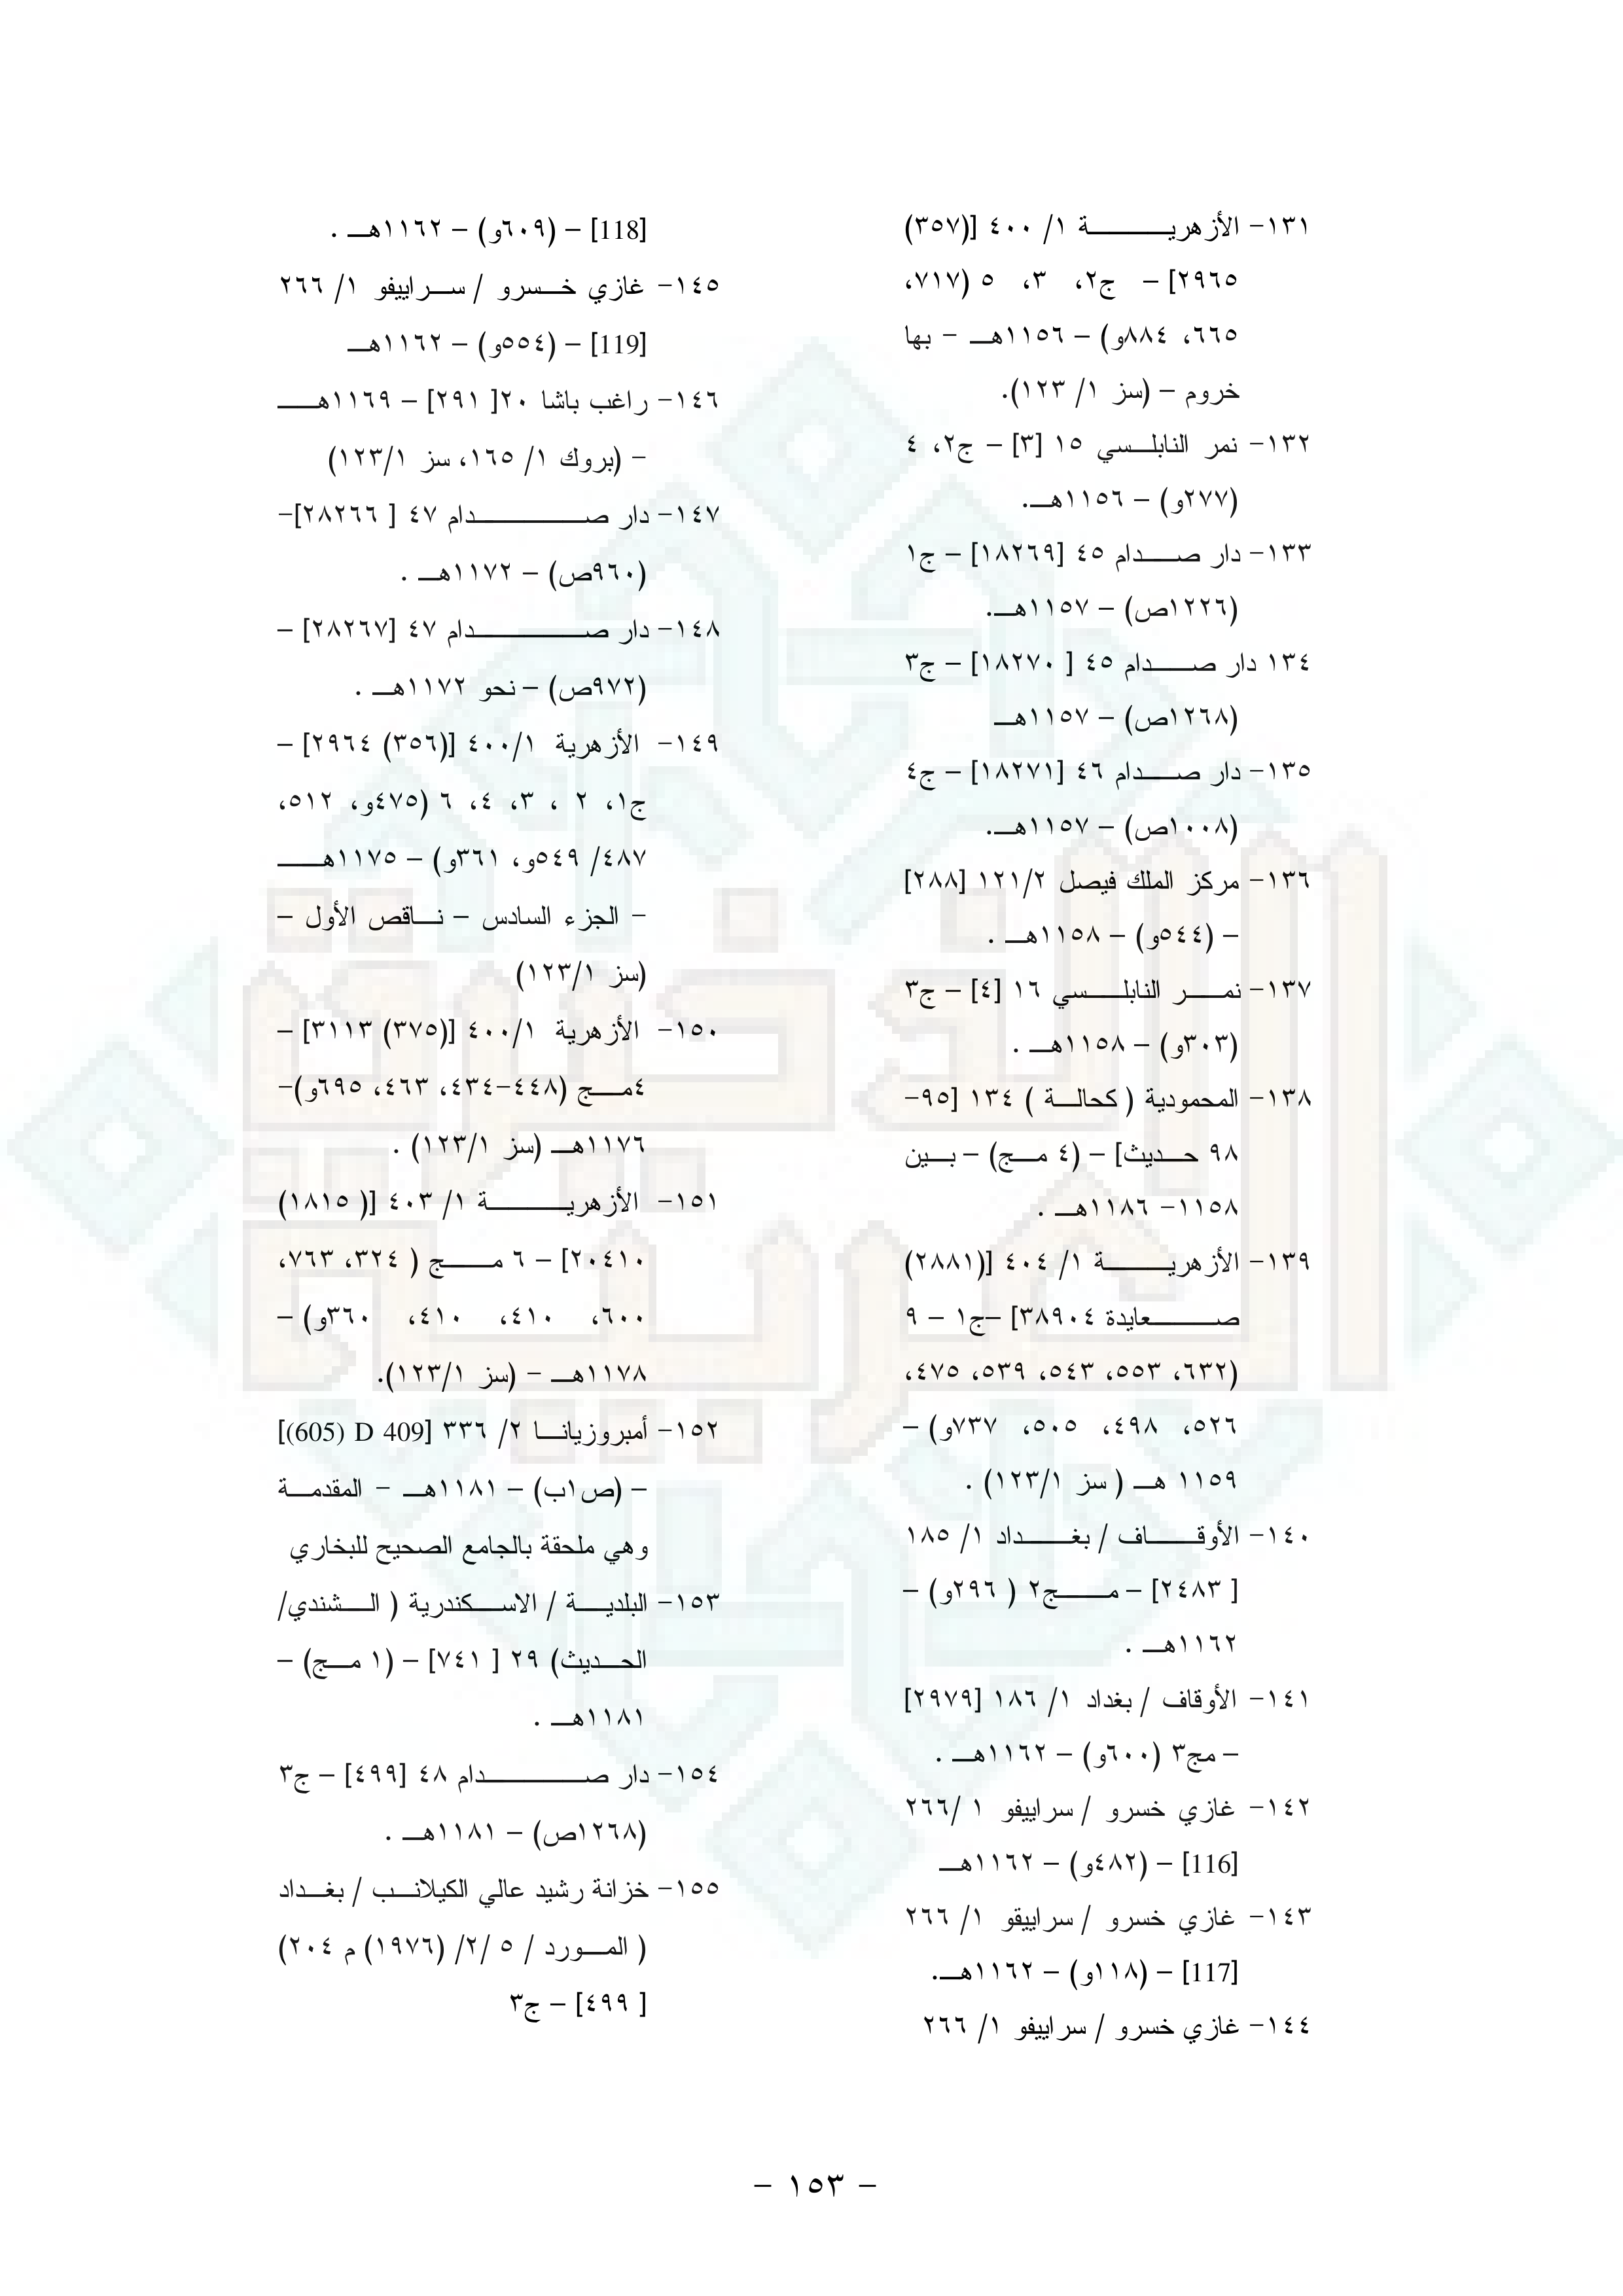 ١٣١- الأزهرية ١/ ٤٠٠ [(٣٥٧)
٢٩٦٥] – ج٢، ٣، ٥ (٧١٧،
٦٦٥، ٨٨٤و) – ١١٥٦هـ - بها
خروم – (سز ١/ ١٢٣).
١٣٢- نمر النابلسي ١٥ [٣] – ج٢، ٤
(٢٧٧و) – ١١٥٦هـ.
١٣٣- دار صدام ٤٥ [١٨٢٦٩] – ج١
(١٢٢٦ص) – ١١٥٧هـ.
١٣٤ دار صدام ٤٥ [ ١٨٢٧٠] – ج٣
(١٢٦٨ص) – ١١٥٧هـ
١٣٥- دار صدام ٤٦ [١٨٢٧١] – ج٤
(١٠٠٨ص) – ١١٥٧هـ.
١٣٦- مركز الملك فيصل ١٢١/٢ [٢٨٨]
– (٥٤٤و) – ١١٥٨هـ .
١٣٧- نمر النابلسي ١٦ [٤] – ج٣
(٣٠٣و) – ١١٥٨هـ .
١٣٨- المحمودية ( كحالة ) ١٣٤ [٩٥-
٩٨ حديث] – (٤ مج) – بين
١١٥٨- ١١٨٦هـ .
١٣٩- الأزهرية ١/ ٤٠٤ [(٢٨٨١)
صعايدة ٣٨٩٠٤] –ج١ – ٩
(٦٣٢، ٥٥٣، ٥٤٣، ٥٣٩، ٤٧٥،
٥٢٦، ٤٩٨، ٥٠٥، ٧٣٧و) –
١١٥٩ هـ ( سز ١٢٣/١) .
١٤٠- الأوقاف / بغداد ١/ ١٨٥
[ ٢٤٨٣] – مج٢ ( ٢٩٦و) –
١١٦٢هـ .
١٤١- الأوقاف / بغداد ١/ ١٨٦ [٢٩٧٩]
– مج٣ (٦٠٠و) – ١١٦٢هـ .
١٤٢- غازي خسرو / سراييفو ١ /٢٦٦
[116] – (٤٨٢و) – ١١٦٢هـ
١٤٣- غازي خسرو / سراييقو ١/ ٢٦٦
[117] – (١١٨و) – ١١٦٢هـ.
١٤٤- غازي خسرو / سراييفو ١/ ٢٦٦
[118] – (٦٠٩و) – ١١٦٢هـ .
١٤٥- غازي خسرو / سراييفو ١/ ٢٦٦
[119] – (٥٥٤و) – ١١٦٢هـ
١٤٦- راغب باشا ٢٠[ ٢٩١] – ١١٦٩هـ
- (بروك ١/ ١٦٥، سز ١٢٣/١)
١٤٧- دار صدام ٤٧ [ ٢٨٢٦٦]-
(٩٦٠ص) – ١١٧٢هـ .
١٤٨- دار صدام ٤٧ [٢٨٢٦٧] –
(٩٧٢ص) – نحو ١١٧٢هـ .
١٤٩- الأزهرية ٤٠٠/١ [(٣٥٦) ٢٩٦٤] –
ج١، ٢ ، ٣، ٤، ٦ (٤٧٥و، ٥١٢،
٤٨٧/ ٥٤٩و، ٣٦١و) – ١١٧٥هـ
- الجزء السادس – ناقص الأول –
(سز ١٢٣/١)
١٥٠- الأزهرية ٤٠٠/١ [(٣٧٥) ٣١١٣] –
٤مج (٤٤٨-٤٣٤، ٤٦٣، ٦٩٥و)-
١١٧٦هـ (سز ١٢٣/١) .
١٥١- الأزهرية ١/ ٤٠٣ [( ١٨١٥)
٢٠٤١٠] – ٦ مج ( ٣٢٤، ٧٦٣،
٦٠٠، ٤١٠، ٤١٠، ٣٦٠و) –
١١٧٨هـ - (سز ١٢٣/١).
١٥٢- أمبروزيانا ٢/ ٣٣٦ [D 409 (605)]
– (ص١ب) – ١١٨١هـ - المقدمة
وهي ملحقة بالجامع الصحيح للبخاري
١٥٣- البلدية / الاسكندرية ( الشندي/
الحديث) ٢٩ [ ٧٤١] – (١ مج) –
١١٨١هـ .
١٥٤- دار صدام ٤٨ [٤٩٩] – ج٣
(١٢٦٨ص) – ١١٨١هـ .
١٥٥- خزانة رشيد عالي الكيلانب / بغداد
( المورد / ٥ /٢/ (١٩٧٦) م ٢٠٤)
[ ٤٩٩] – ج٣
– ١٥٣ –